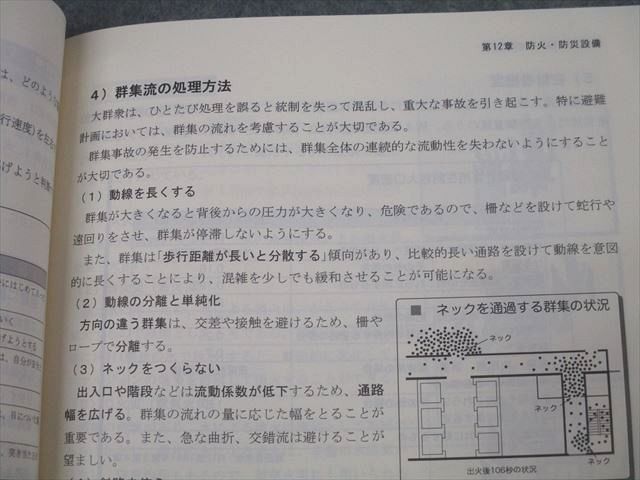 第12章 防火・防災設備
4）群集流の処理方法
大群衆は、ひとたび処理を誤ると統制を失って混乱し、重大な事故を引き起こす。特に避難
計画においては、群集の流れを考慮することが大切である。
群集事故の発生を防止するためには、群集全体の連続的な流動性を失わないようにすること
が大切である。
（1）動線を長くする
群集が大きくなると背後からの圧力が大きくなり、危険であるので、柵などを設けて蛇行や
遠回りをさせ、群集が停滞しないようにする。
また、群集は「歩行距離が長いと分散する」傾向があり、比較的長い通路を設けて動線を意図
的に長くすることにより、混雑を少しでも緩和させることが可能になる。
（2）動線の分離と単純化
方向の違う群集は、交差や接触を避けるため、柵や
ロープで分離する。
（3）ネックをつくらない
出入口や階段などは流動係数が低下するため、通路
幅を広げる。群集の流れの量に応じた幅をとることが
重要である。また、急な曲折、交錯流は避けることが
望ましい。
■ ネックを通過する群集の状況
ネック
ネック
ネック
出火後106秒の状況
は、どのよう
行速度)を左
げようと